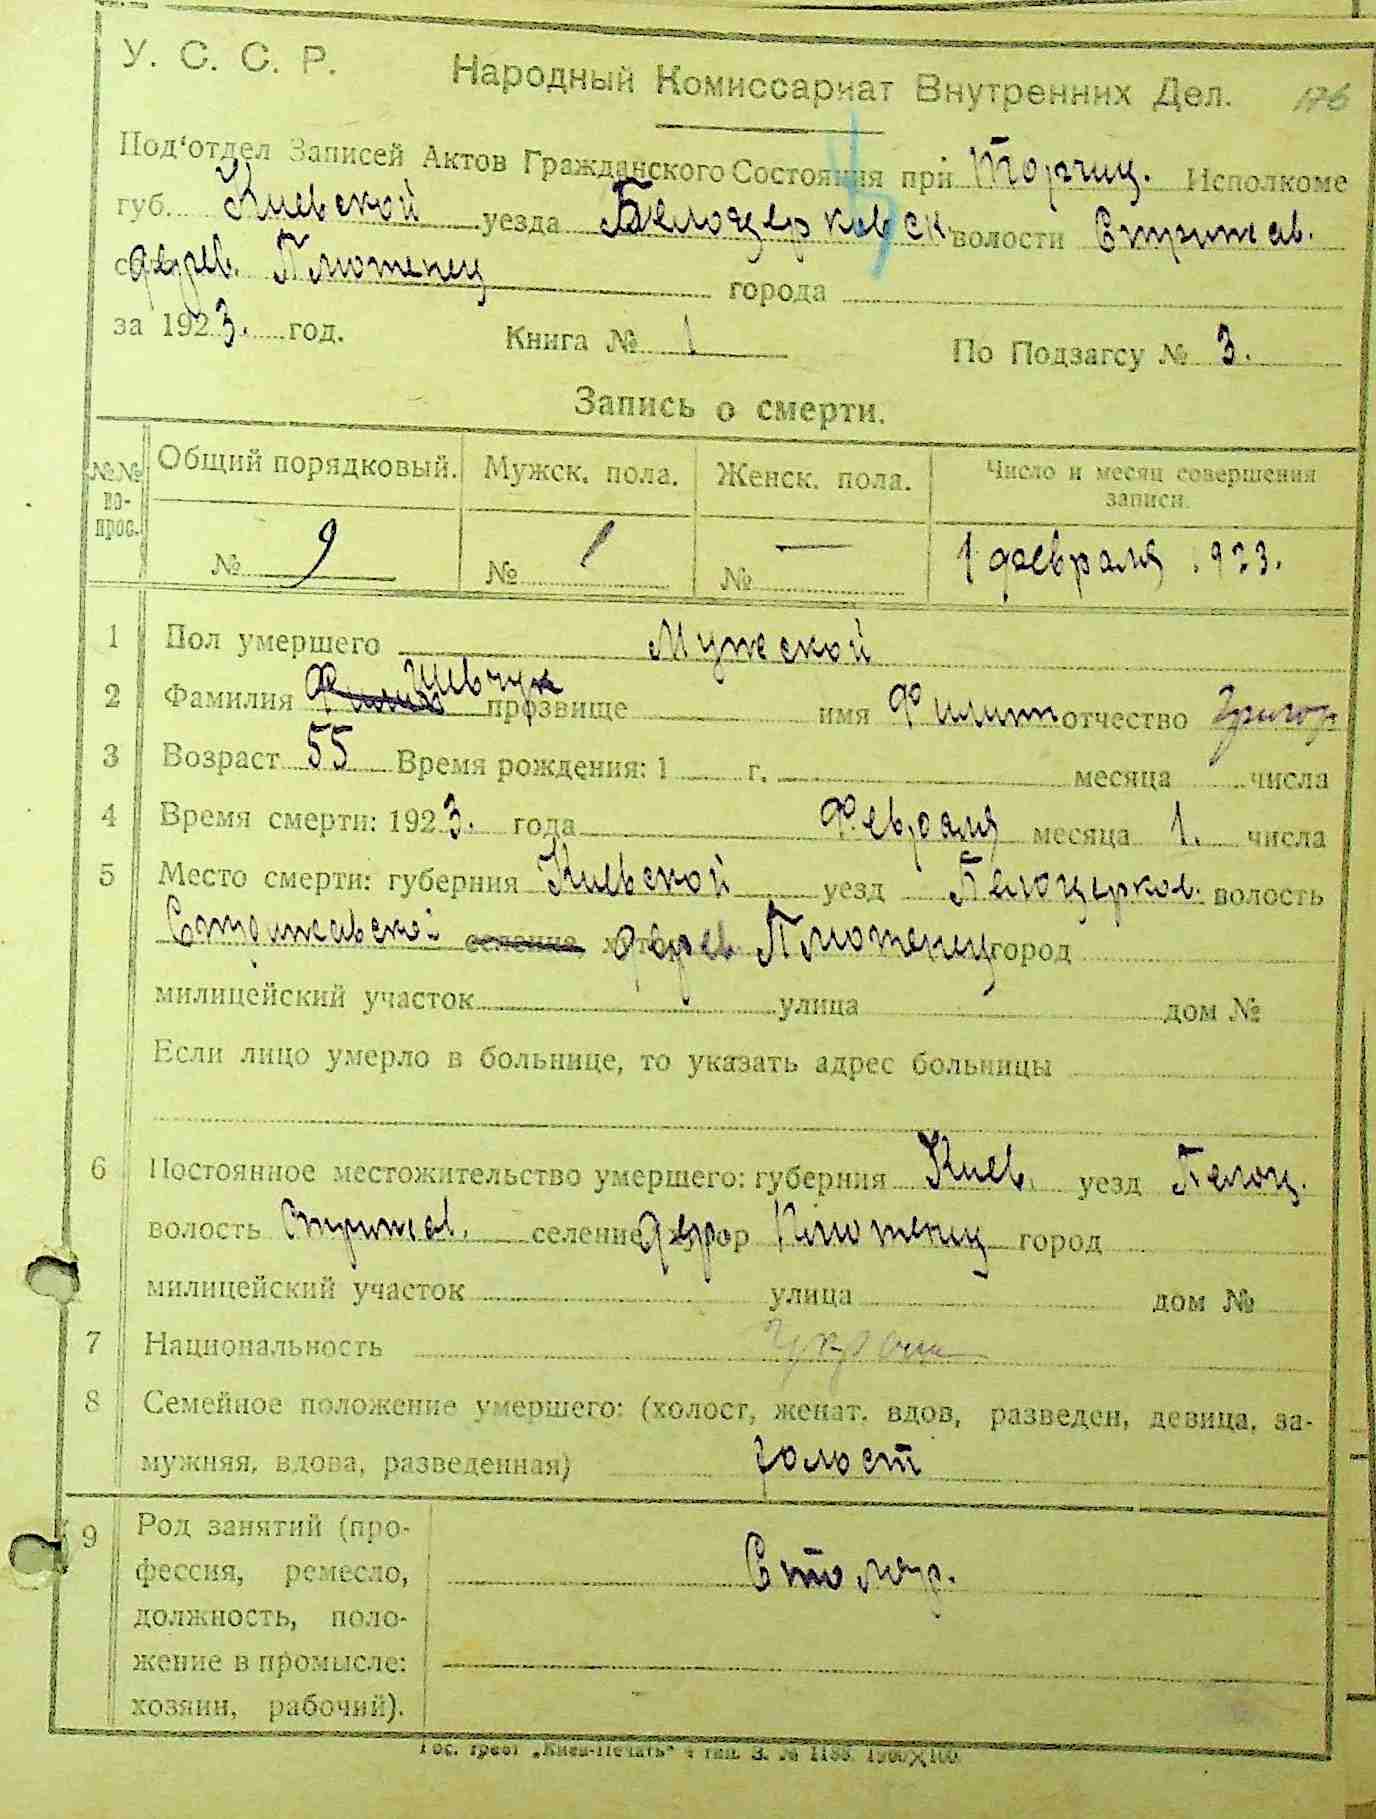 У. С. С. Р. Народный Комиссариат Внутренних Дел. 176
Под‘отдел Записей Актов Гражданского Состояния при Торчиц. Исполкоме
губ. Киевской уезда Белоцерковск. волости Стрижав.
дерев. Плютенец города
за 1923. год. Книга № 1 По Подзагсу № 3.
Запись о смерти.
№№ во-прос. Общий порядковый. Мужск. пола. Женск. пола. Число и месяц совершения записи.
№ 9 № 1 № — 1 февраля 1923.
1 Пол умершего Мужской
2 Фамилия Шевчук прозвище имя Филип отчество Григор
3 Возраст 55 Время рождения: 1 г. месяца числа
4 Время смерти: 1923. года Февраля месяца 1. числа
5 Место смерти: губерния Киевской уезд Белоцерков. волость
Стрижавской селение, дерев Плютенец город
милицейский участок улица дом №
Если лицо умерло в больнице, то указать адрес больницы
6 Постоянное местожительство умершего: губерния Киев. уезд Белоц.
волость Стрижав. селение, дер Плютенец город
милицейский участок улица дом №
7 Национальность
8 Семейное положение умершего: (холост, женат, вдов, разведен, девица, за-
мужняя, вдова, разведенная) холост
9 Род занятий (про-
фессия, ремесло, Столяр.
должность, поло-
жение в промысле:
хозяин, рабочий).
Гос. трест „Киев-Печать“ 4 тип. З. № 1188.